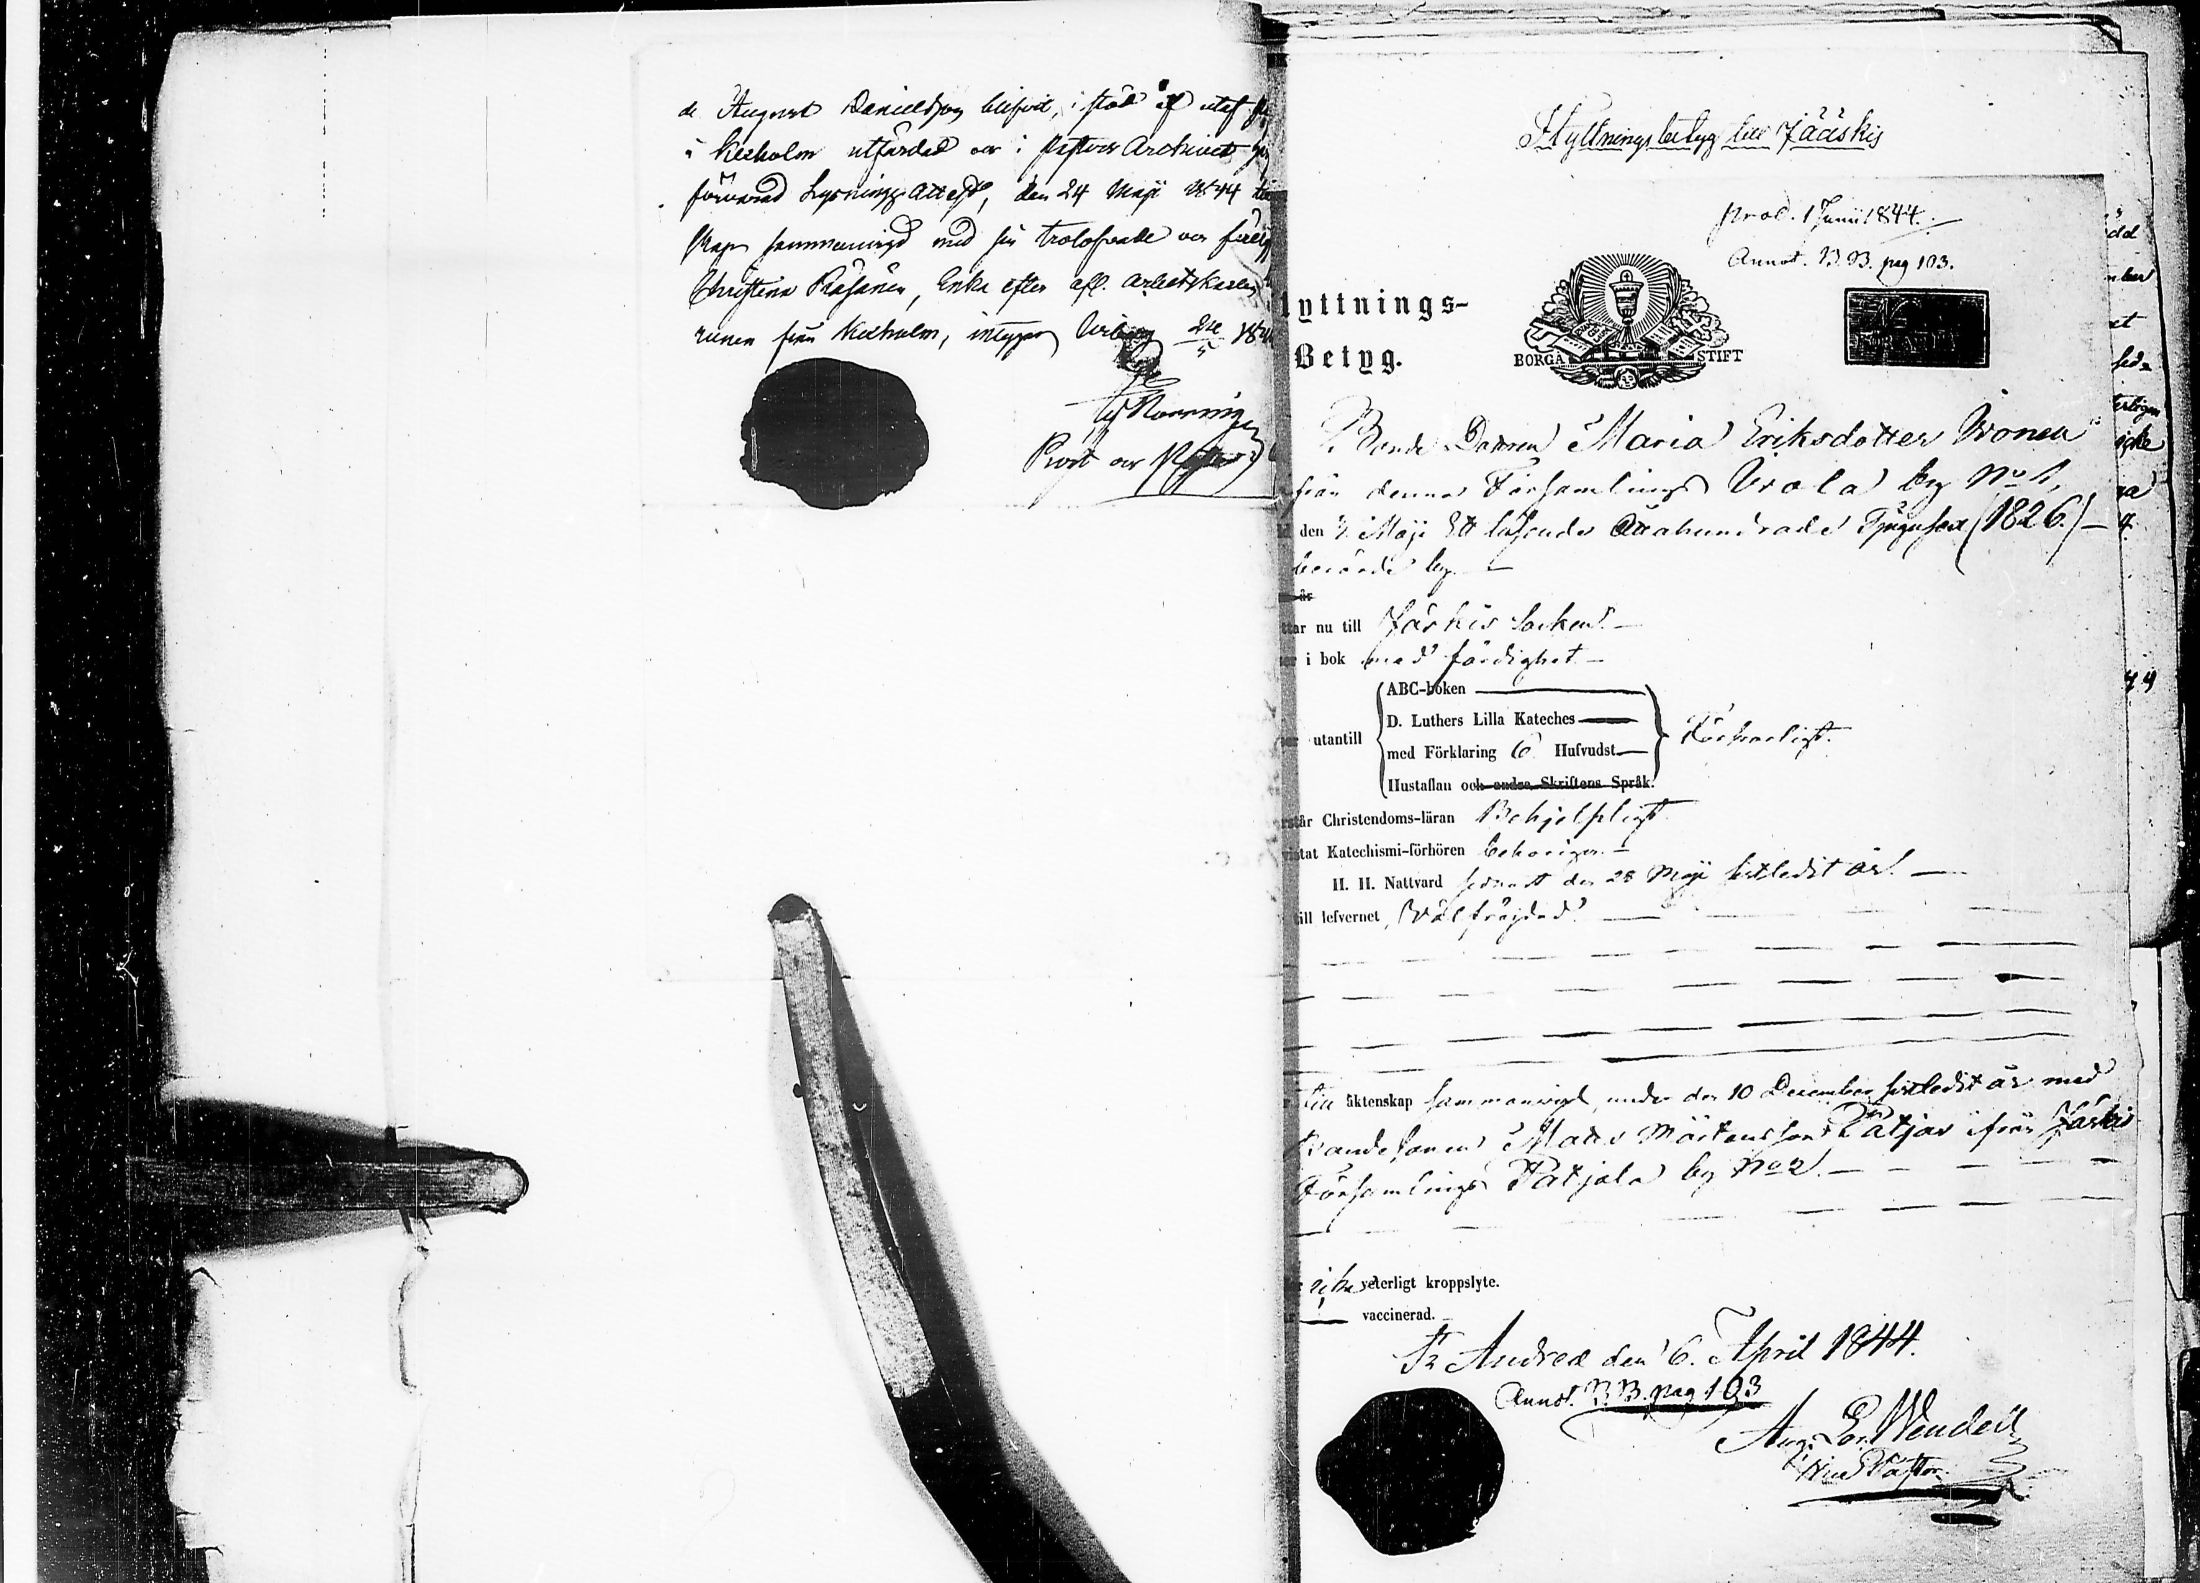 de August Danielsson blifvit, i stöd af utaf
i Kexholm utfärdad och i Pastors Archivet
förvarad Lysnings Attest, den 24 Maji 1844
skap sammanvigd med sin trolofvade
Christina Räsänen, Enka efter afl. Arbetskarlen
från Kexholm, intygar Wiborg 24/5 184
Prost och
Flyttningsbetyg till Jääskis
prod. 1 Junii 1844.
Annot. B.B. pag 103.
lyttnings-
Betyg.
BORGÅ STIFT
Bonde Dottren Maria Eriksdotter
från denna Församlings by No 1,
den Maji Ett tusende Åttahundrade Tjugusex (1826.)
berörde by.
år
ttar nu till Jäskis Socken.
i bok med färdighet
ABC-boken
D. Luthers Lilla Kateches
utantill
med Förklaring 6 Hufvudst.
Försvarligt.
Hustaflan och andra Skriftens Språk.
rstår Christendoms-läran Behjelpligt
vistat Katechismi-förhören behörigen.
H. H. Nattvard sednast den 28 Maji sistledit år.
till lefvernet Välfrägdad.
till äktenskap sammanvigd under den 10 December sistledit år med
Bondesonen Matts Mårtensson Patjas ifrån Jäskis
Församlings Patjala by No 2.
icke veterligt kroppslyte.
vaccinerad.
St Andreæ den 6. April 1844.
Annot. B.B. pag 103
Aug. Wendell
Pastor.